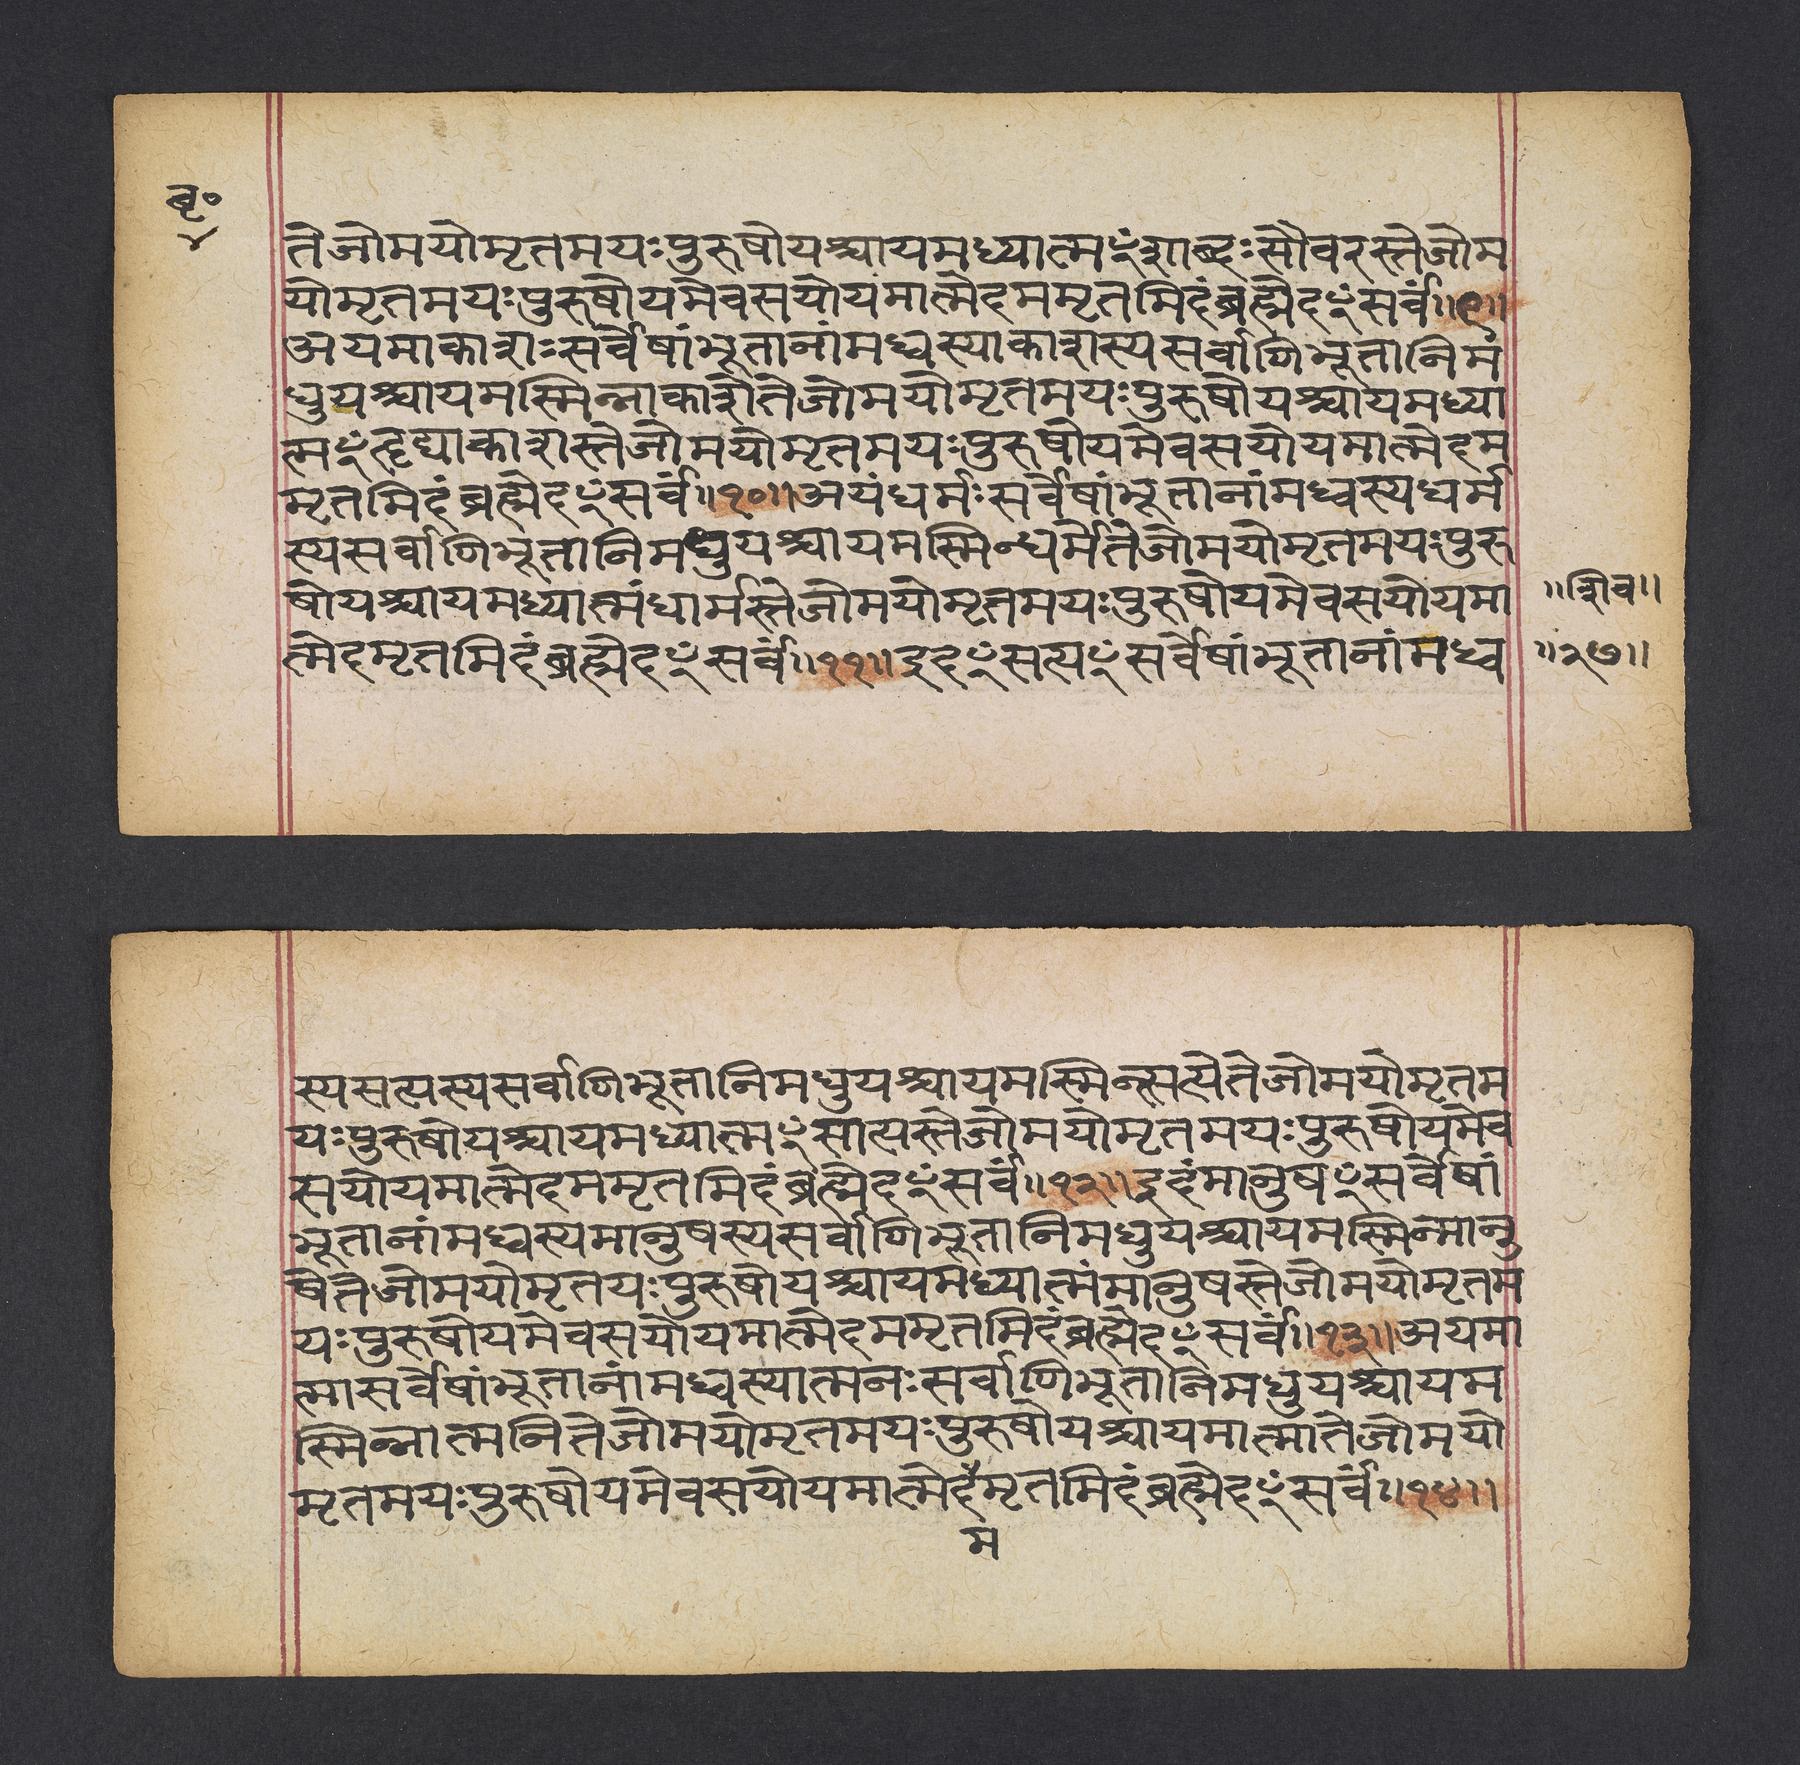 बृ॰
४
तेजोमयोमृतमयःपुरुषोयश्चायमध्यात्मꣳशाब्दःसौवरस्तेजोम
योमृतमयःपुरुषोयमेवसयोयमात्मेदममृतमिदंब्रह्मेदꣳसर्वं॥९॥
अयमाकाशःसर्वेषांभूतानांमध्वस्याकाशस्यसर्वाणिभूतानिमं
धुयश्चायमस्मिन्नाकाशेतेजोमयोमृतमयःपुरुषोयश्चायमध्या
त्मꣳहृद्याकाशस्तेजोमयोमृतमयःपुरुषोयमेवसयोयमात्मेदम
मृतमिदंब्रह्मेदꣳसर्वं॥१०॥अयंधर्मःसर्वेषांभूतानांमध्वस्यधर्म
स्यसर्वाणिभूतानिमधुयश्चायमस्मिन्धर्मेतेजोमयोमृतमयःपुरु
षोयश्चायमध्यात्मंधार्मस्तेजोमयोमृतमयःपुरुषोयमेवसयोयमा
॥शिव॥
त्मेदमृतमिदंब्रह्मेदꣳसर्वं॥११॥इदꣳसत्यꣳसर्वेषांभूतानांमध्व
॥२७॥
स्यसत्यस्यसर्वाणिभूतानिमधुयश्चायमस्मिन्सत्येतेजोमयोमृतम
यःपुरुषोयश्चायमध्यात्मꣳसात्यस्तेजोमयोमृतमयःपुरुषोयमेव
सयोयमात्मेदममृतमिदंब्रह्मेदꣳसर्वं॥१२॥इदंमानुषꣳसर्वेषां
भूतानांमध्वस्यमानुषस्यसर्वाणिभूतानिमधुयश्चायमस्मिन्मानु
षेतेजोमयोमृतयःपुरुषोयश्चायमध्यात्मंमानुषस्तेजोमयोमृतम
यःपुरुषोयमेवसयोयमात्मेदममृतमिदंब्रह्मेदꣳसर्वं॥१३॥अयमा
त्मासर्वेषांभूतानांमध्वस्यात्मनःसर्वाणिभूतानिमधुयश्चायम
स्मिन्नात्मनितेजोमयोमृतमयःपुरुषोयश्चायमात्मातेजोमयो
मृतमयःपुरुषोयमेवसयोयमात्मेदमृतमिदंब्रह्मेदꣳसर्वं॥१४॥
म